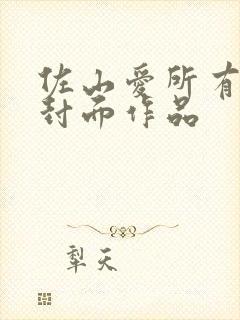 佐山愛所有
封面作品
犁天